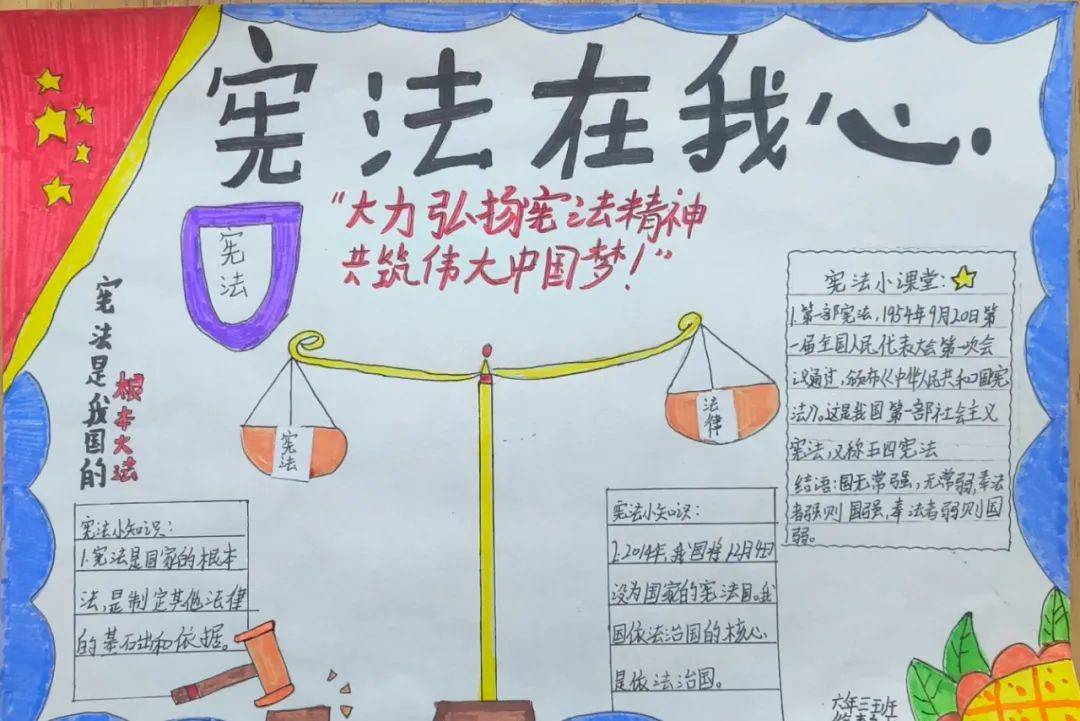 宪法在我心.
"大力弘扬宪法精神
共筑伟大中国梦!"
宪法
宪法是我国的
根本大法
宪法
法律
宪法小课堂:
1.第一部宪法,1954年9月20日第
一届全国人民代表大会第一次会
议通过,颁布《中华人民共和国宪
法》。这是我国第一部社会主义
宪法,又称五四宪法
结语:国无常强,无常弱,奉法
者强则国强,奉法者弱则国
弱。
宪法小知识:
1.宪法是国家的根本
法,是制定其他法律
的基础和依据。
宪法小知识:
2.2014年,我国将12月4日
设为国家的宪法日。我
国依法治国的核心
是依法治国。
六年三班